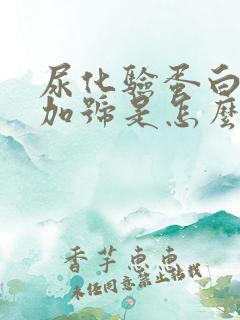 尿化验蛋白
加号是怎么
香芋惠惠
未经同意禁止转载